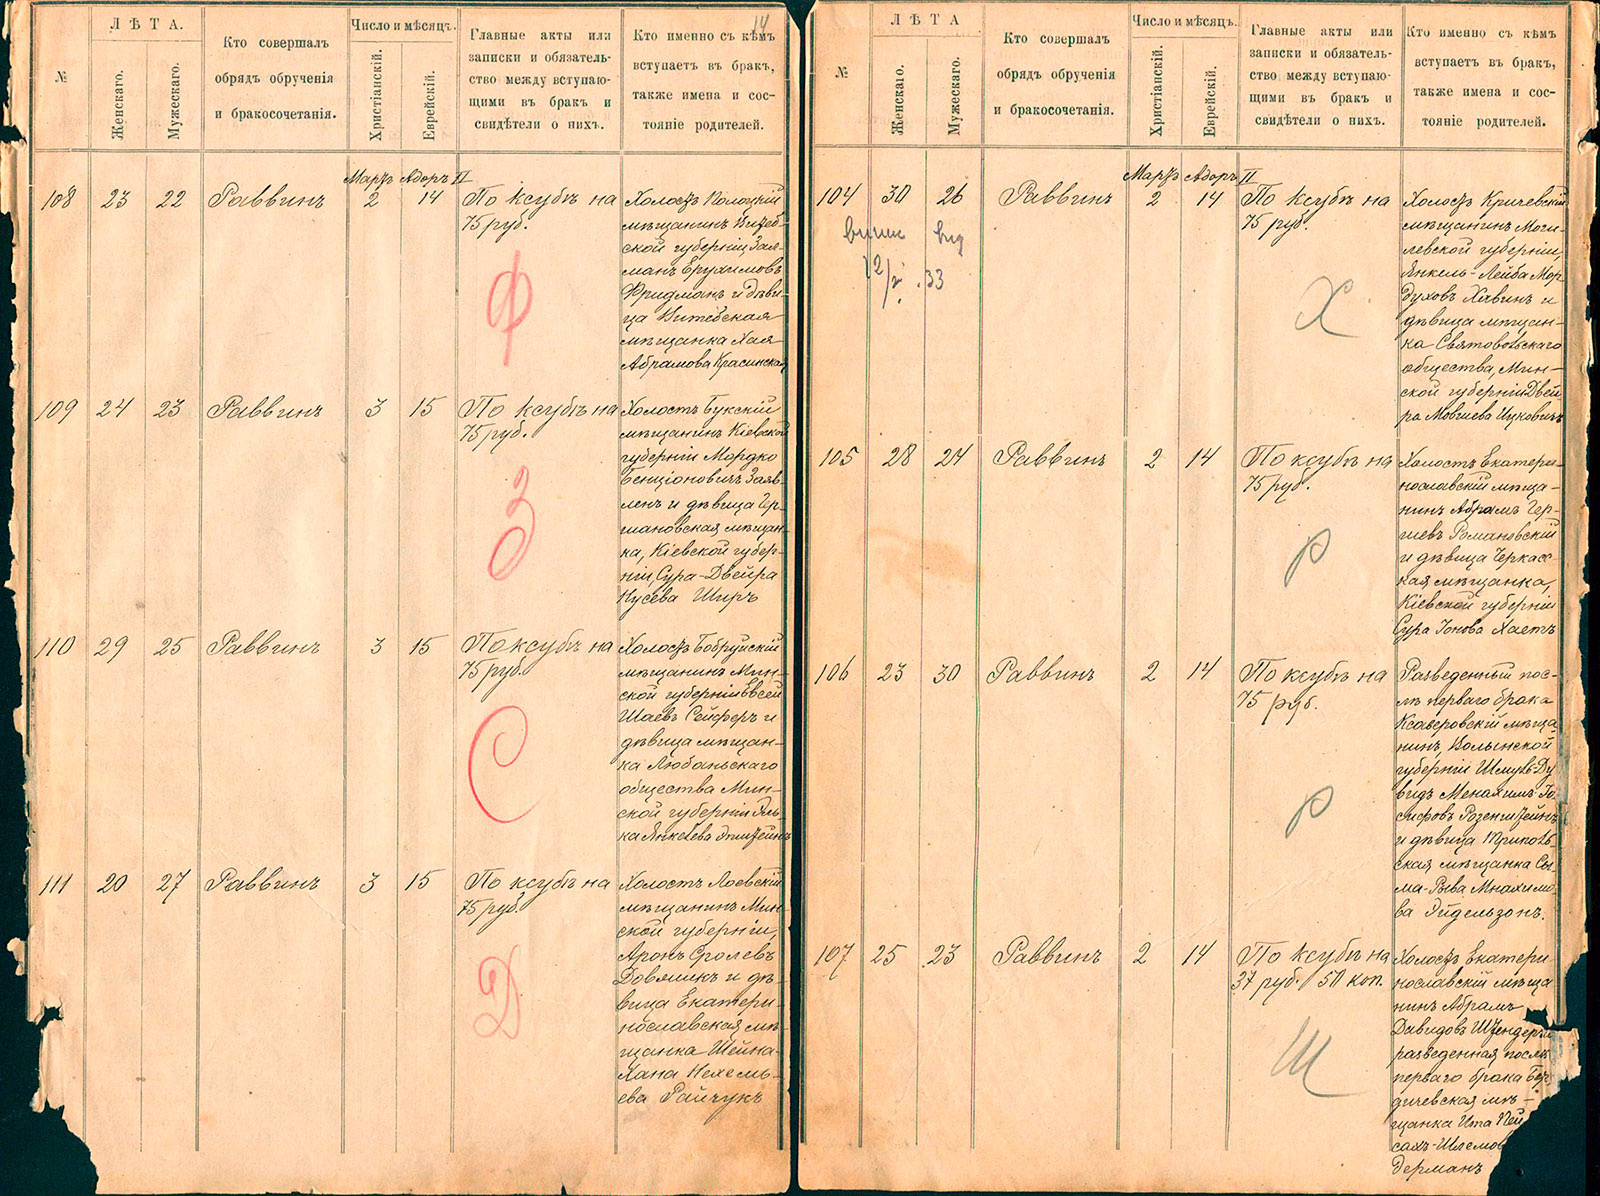 14
№
ЛѢТА.
Женскаго.
Мужескаго.
Кто совершалъ
обрядъ обрученія
и бракосочетанія.
Число и мѣсяцъ.
Христіанскій.
Еврейскій.
Главные акты или
записки и обязатель-
ство между вступаю-
щими въ бракъ и
свидѣтели о нихъ.
Кто именно съ кѣмъ
вступаетъ въ бракъ,
также имена и сос-
тояніе родителей.
Мартъ Адоръ II
108 23 22 Раввинъ 2 14
По ксубѣ на
75 руб.
Ф
Холостъ Полоцкій
мѣщанинъ Витеб-
ской губерніи Зал-
манъ Ерухимовъ
Фридманъ и дѣви-
ца Витебская
мѣщанка Хая
Абрамова Красинская
109 24 23 Раввинъ 3 15
По ксубѣ на
75 руб.
З
Холостъ Букскій
мѣщанинъ Кіевской
губерніи Мордко
Бенціоновичъ Заяв-
ленъ и дѣвица Гер-
мановская мѣщан-
ка, Кіевской губер-
ніи, Сура-Двейра
Нусева Ширъ
110 29 25 Раввинъ 3 15
По ксубѣ на
75 руб.
С
Холостъ Бобруйскій
мѣщанинъ Мин-
ской губерніи Евсей
Шаевъ Сейферъ и
дѣвица мѣщан-
ка Любаньскаго
общества Мин-
ской губерніи
Янкелева
111 20 27 Раввинъ 3 15
По ксубѣ на
75 руб.
Д
Холостъ Лоевскій
мѣщанинъ Мин-
ской губерніи,
Аронъ Сролевъ
Довяликъ и дѣ-
вица Екатери
нославская мѣ-
щанка Шейна-
Хана Нехемь-
ева Райчукъ
№
ЛѢТА
Женскаго.
Мужескаго.
Кто совершалъ
обрядъ обрученія
и бракосочетанія.
Число и мѣсяцъ.
Христіанскій.
Еврейскій.
Главные акты или
записки и обязатель-
ство между вступаю-
щими въ бракъ и
свидѣтели о нихъ.
Кто именно съ кѣмъ
вступаетъ въ бракъ,
также имена и сос-
тояніе родителей.
Мартъ Адоръ II
104 30 26 Раввинъ 2 14
33
По ксубѣ на
75 руб.
Х
Холостъ Кричевскій
мѣщанинъ Моги-
левской губерніи,
Янкель-Лейба Мор
духовъ Хавинъ и
дѣвица мѣщан-
ка Святовольскаго
общества, Мин-
ской губерніи Двей-
ра Мовшева Ицковичъ
105 28 24 Раввинъ 2 14
По ксубѣ на
75 руб.
Р
Холостъ Екатери-
нославскій мѣща-
нинъ Абрамъ Гер-
шевъ Романовскій
и дѣвица Черкасс-
кая мѣщанка,
Кіевской губерніи
Сура Іонова Хаетъ
106 23 30 Раввинъ 2 14
По ксубѣ на
75 руб.
Р
Разведенный пос-
лѣ перваго брака
Ксаверовскій мѣща
нинъ, Волынской
губерніи Шмуль-Ду
видъ Менахимъ-Іо-
сифовъ Розенштейнъ
и дѣвица Триполь-
ская мѣщанка Сы-
ма-Рыва Мнахимо-
ва Эйдельзонъ.
107 25 23 Раввинъ 2 14
По ксубѣ на
37 руб. 50 коп.
Ш
Холостъ Екатери
нославскій мѣща
нинъ Абрамъ
Давидовъ Штендеръ и
разведенная послѣ
перваго брака Бер
дичевская мѣ-
щанка Ита Пей
сахъ-Шлемов
дерманъ